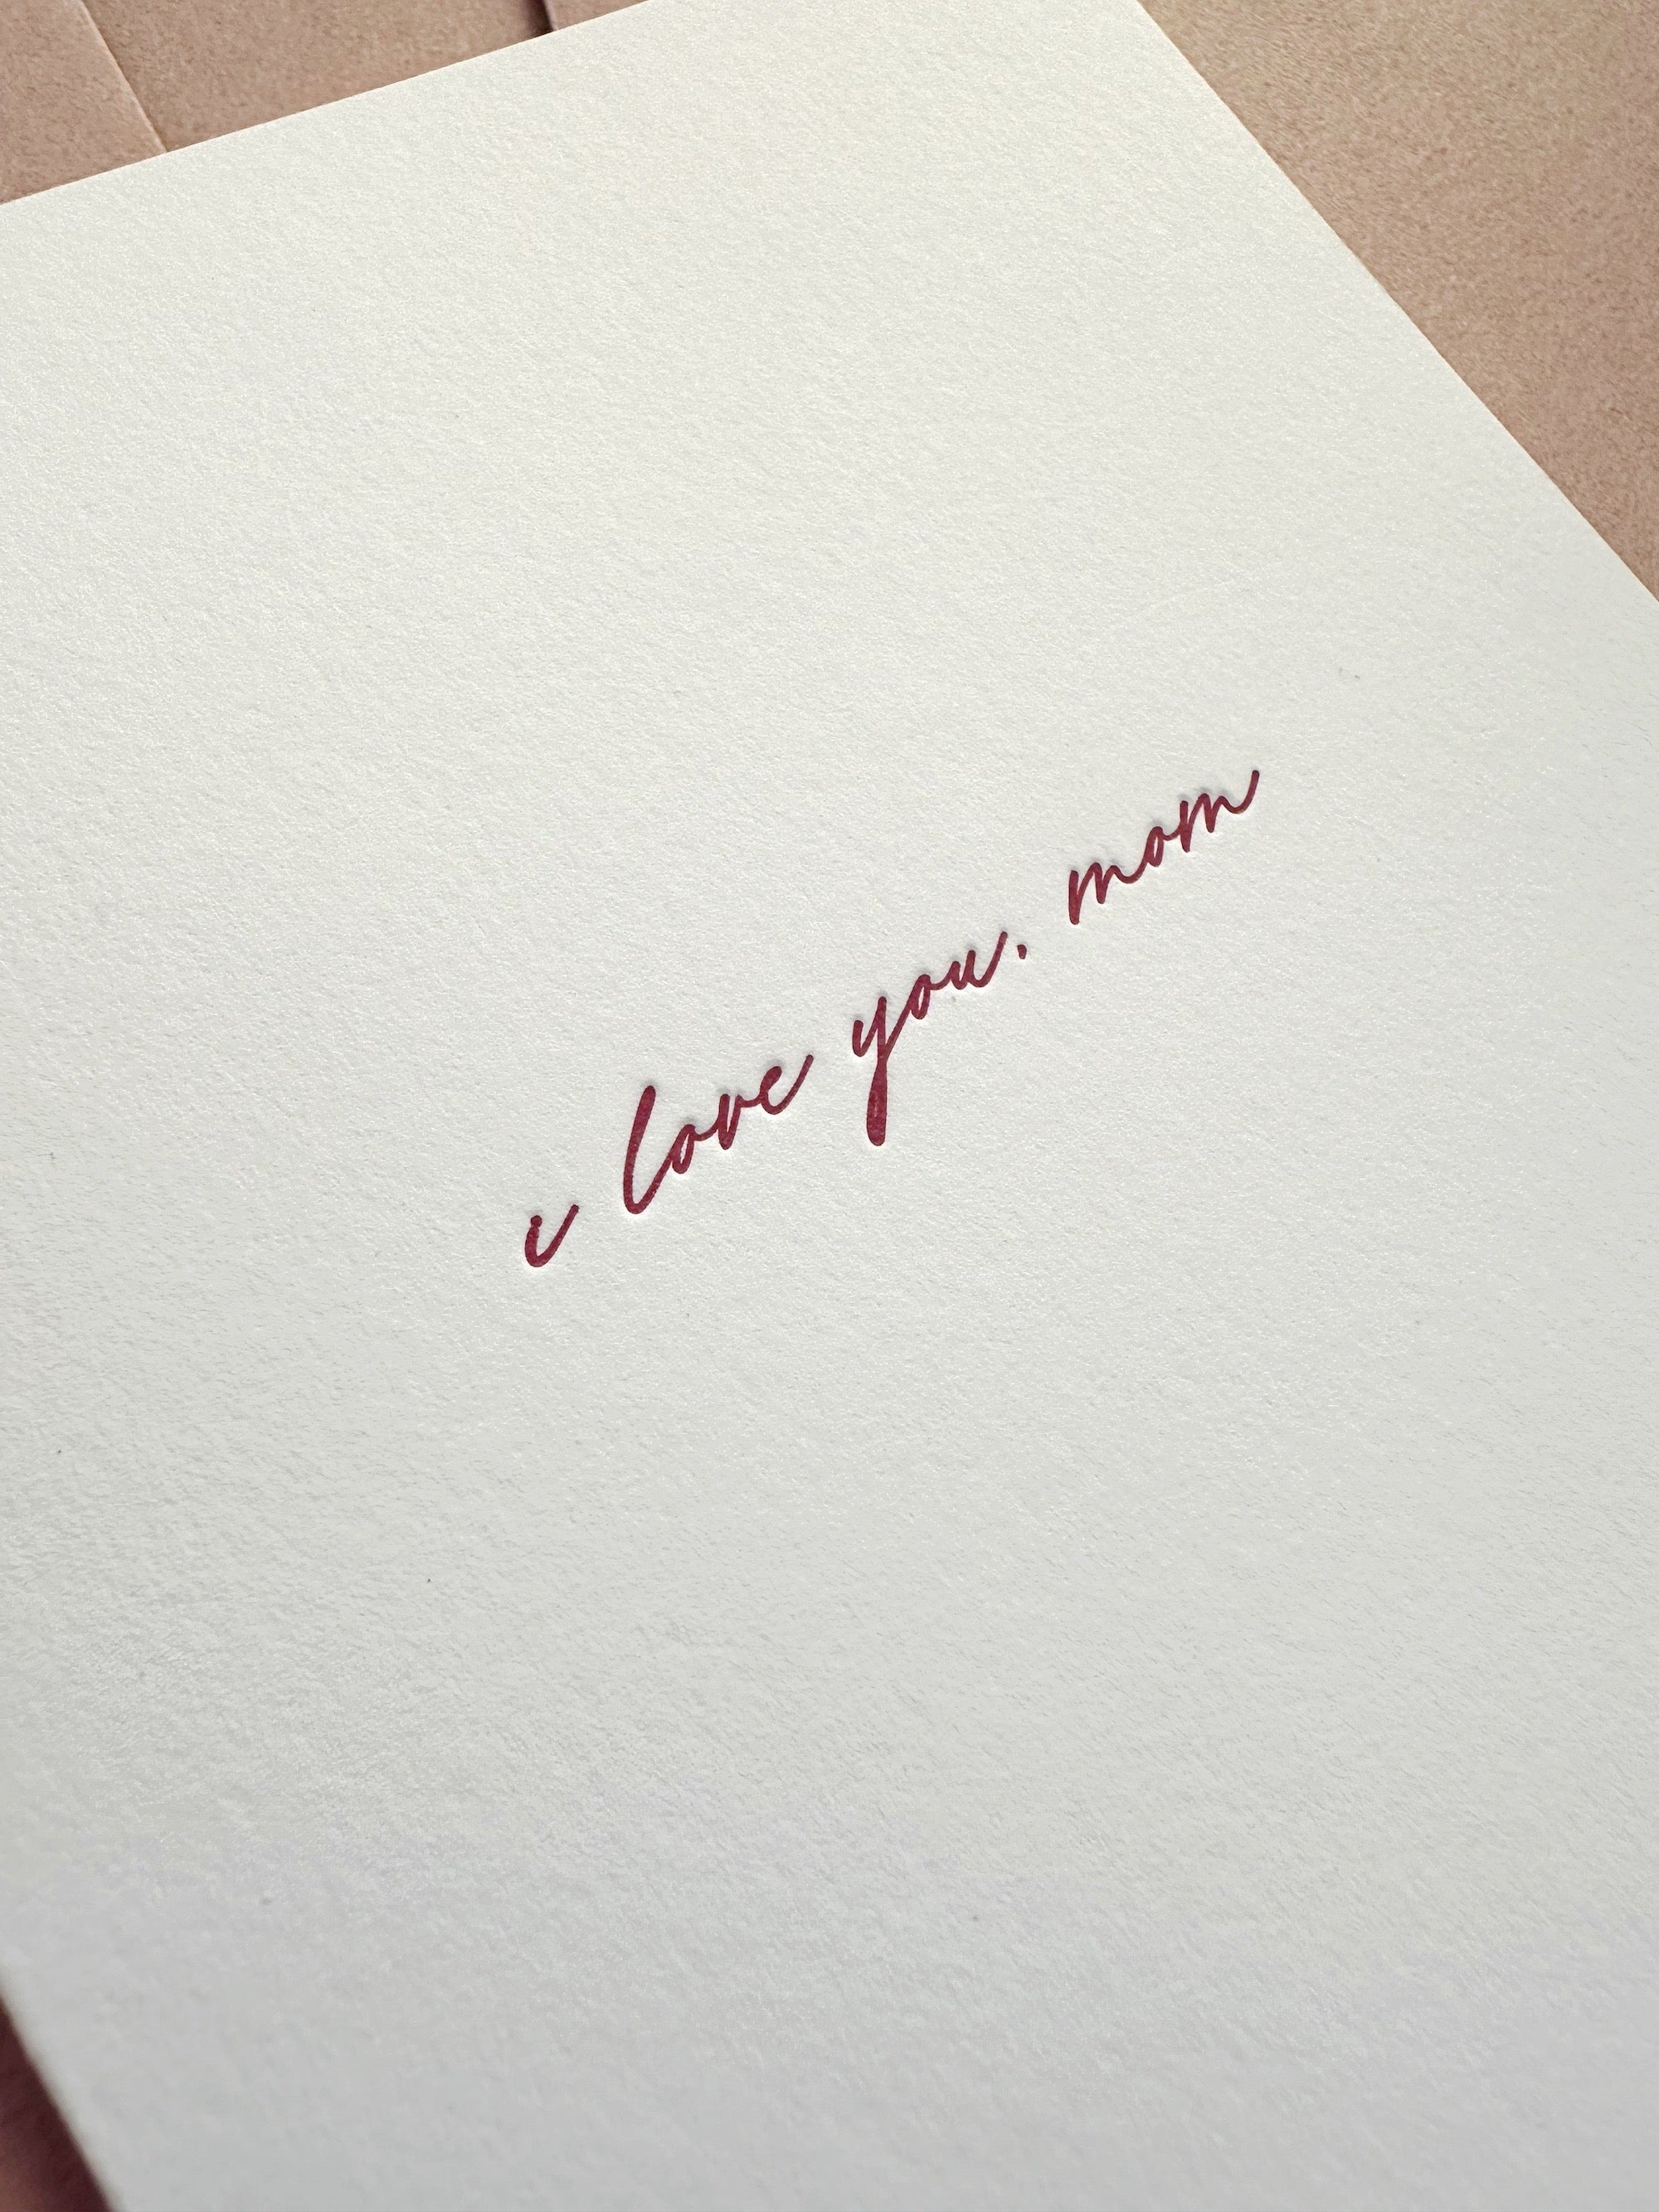 i love you. mom